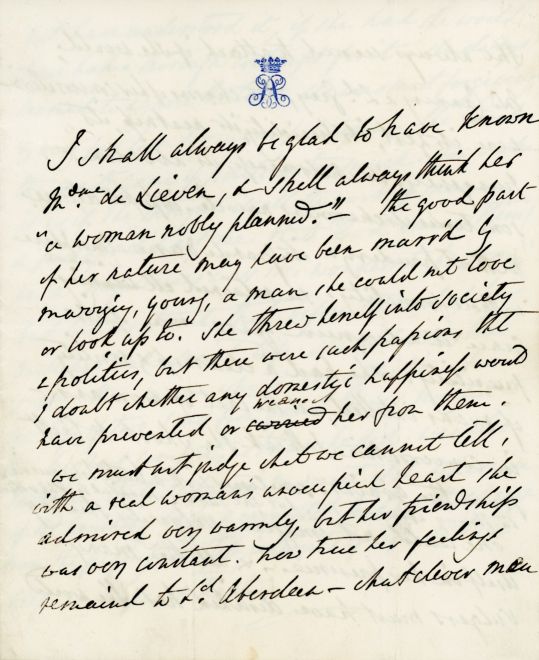 I shall always be glad to have known
Mdme. de Lieven, & shall always think her
"a woman nobly planned." The good part
of her nature may have been marr'd by
marrying, young, a man she could not love
or look up to. She threw herself into society
& politics, but there were such passions tht
I doubt whether any domestic happiness would
have prevented or carried weaned her from them.
We must not judge what we cannot tell,
with a real woman's unoccupied heart she
admired very warmly, but her friendships
was very constant. how true her feelings
remaind to Ld. Aberdeen – what clever men